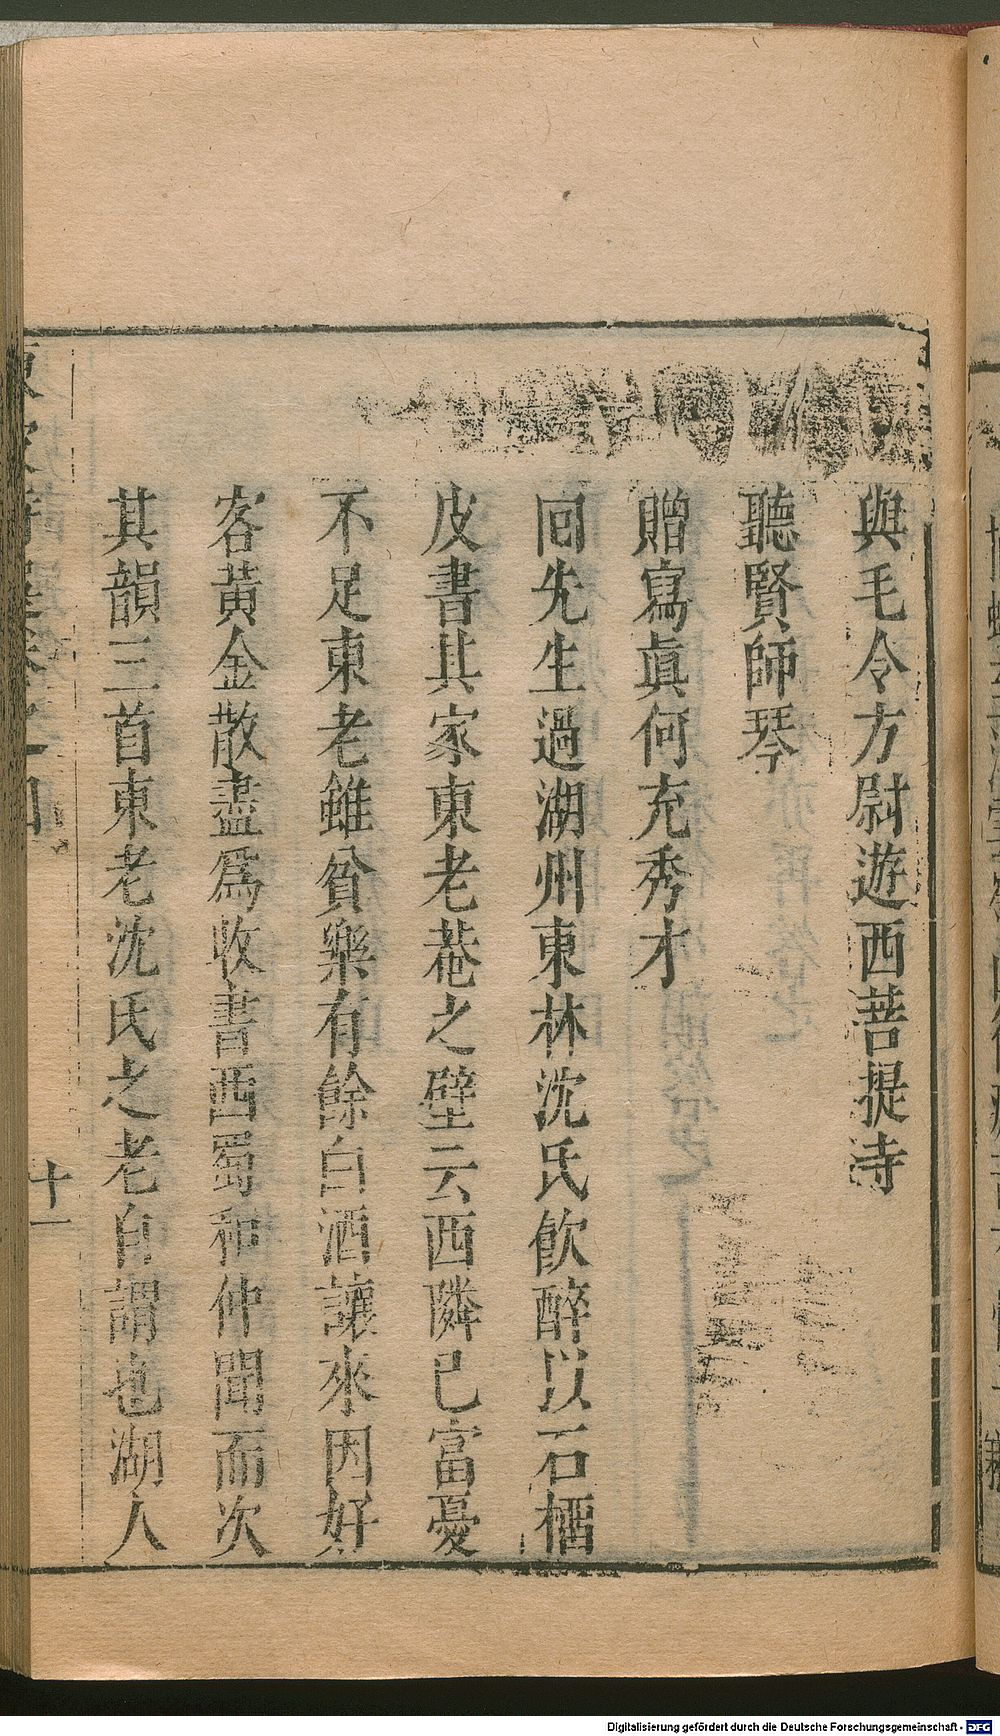 與毛令方尉遊西菩提寺
聽賢師琴
贈寫眞何充秀才
囘先生過湖州東林沈氏飲醉以石榴
皮書其家東老菴之壁云西隣已富憂
不足東老雖貧樂有餘白酒讓來因好
客黃金散盡爲收書西蜀和仲聞而次
其韻三首東老沈氏之老自謂也湖人
十一
Digitalisierung gefördert durch die Deutsche Forschungsgemeinschaft - DFG